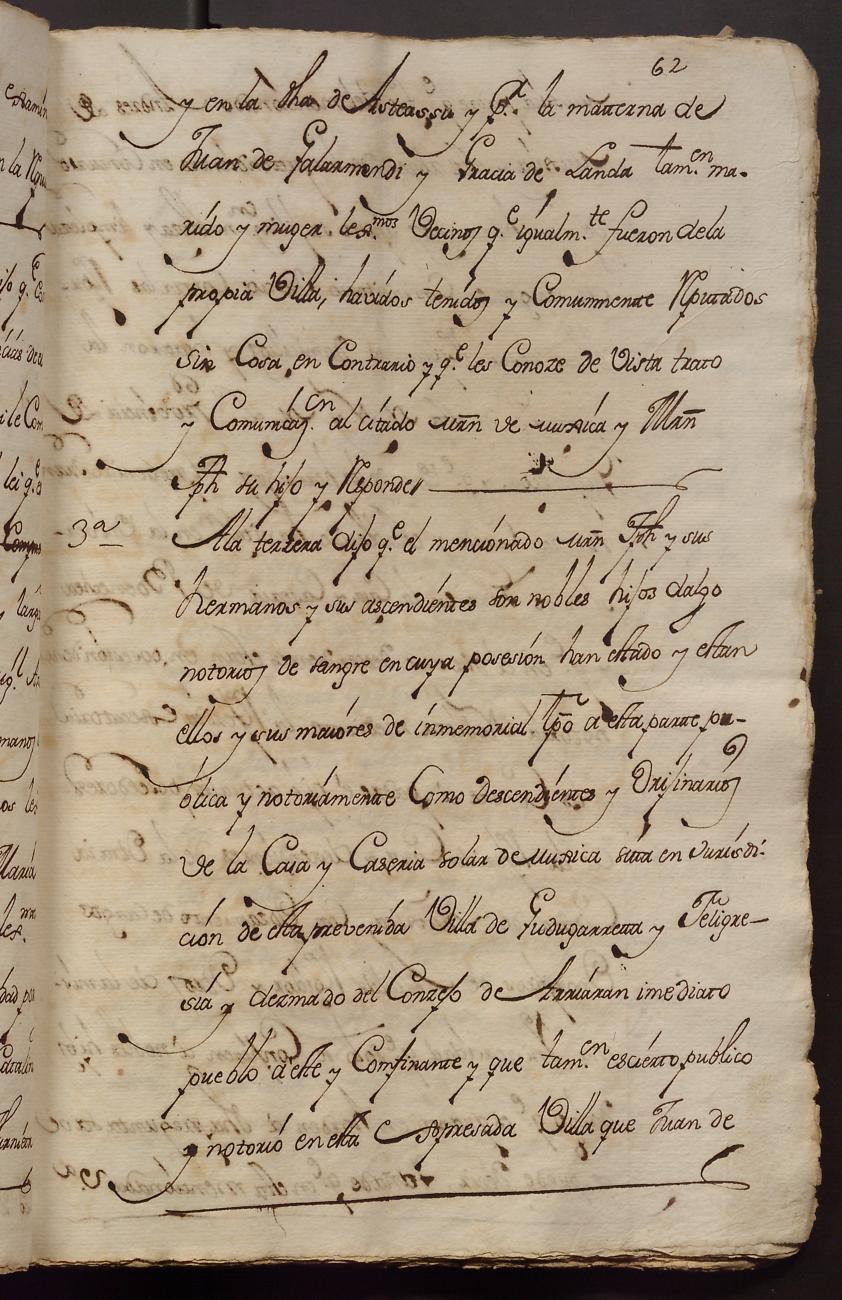 62
y en la dha de Asteassu y P.r la matterna de
Juan de Galarmendi y Gracia de Landa tam.en ma-
rido y muger lex.mos Vecinos q.e igualm.te fueron dela
propia Villa, havidos tenidos y Comunmente Rputados
sin Cosa en Contrario y q.e les Conoze de Vista trato
y Comunicaz.on al citado Juan de Muxica y Mrn
Jph su hijo y Rsponde
3a Ala terzera dijo q.e el mencionado Jph y sus
hermanos y sus ascendientes son nobles hijos dalgo
notorios de sangre en cuya posesión han estado y estan
ellos y sus maiores de inmemorial tpo a esta parte pu-
blica y notoriamente Como descendientes y Orijinarios
de la Casa y Caseria solar de Muxica sita en Jurisdi-
ción de esta prevenida Villa de Gudugarreta y Feligre-
sia y dezmado del Conzejo de Arriaran imediato
pueblo a este y Confinante y que tam.en es cierto publico
y notorio en esta Expresada Villa que Juan de